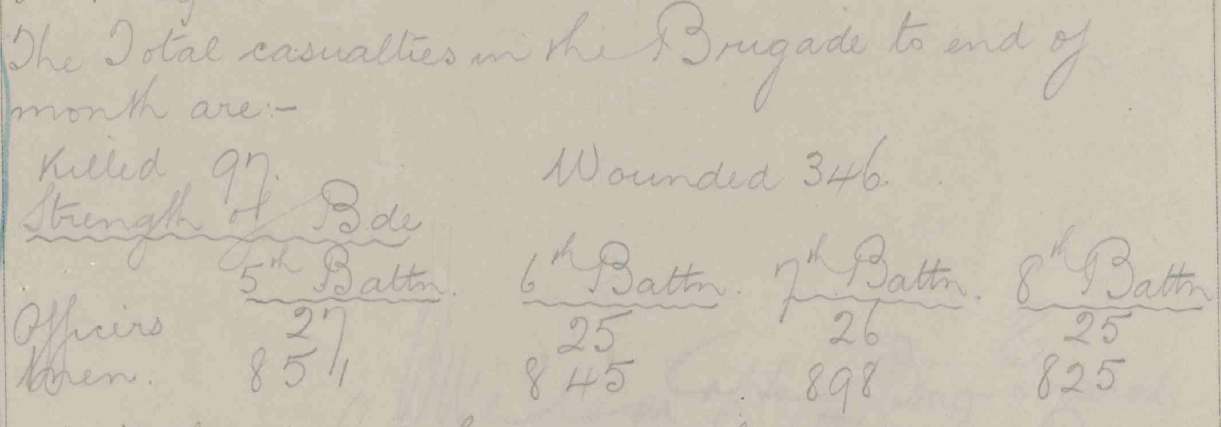 The Total casualties in the Brigade to end of
month are:-
Killed 97. Wounded 346.
Strength of Bde
5th Battn. 6th Battn. 7th Battn. 8th Battn
Officers 27 25 26 25
Men. 845 898 825